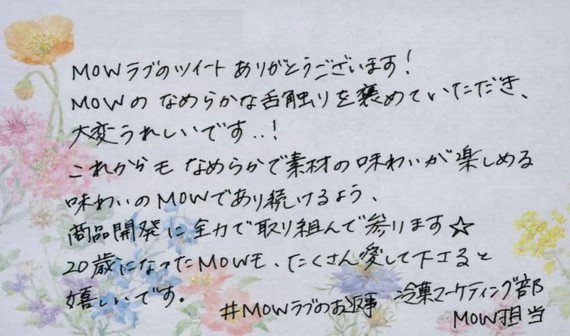 MOWラブのツイートありがとうございます!
MOWのなめらかな舌触りを褒めていただき、
大変うれしいです..!
これからもなめらかで素材の味わいが楽しめる
味わいのMOWであり続けるよう、
商品開発に全力で取り組んで参ります☆
20歳になったMOWも、たくさん愛して下さると
嬉しいです。
#MOWラブのお返事 冷菓マーケティング部
MOW担当